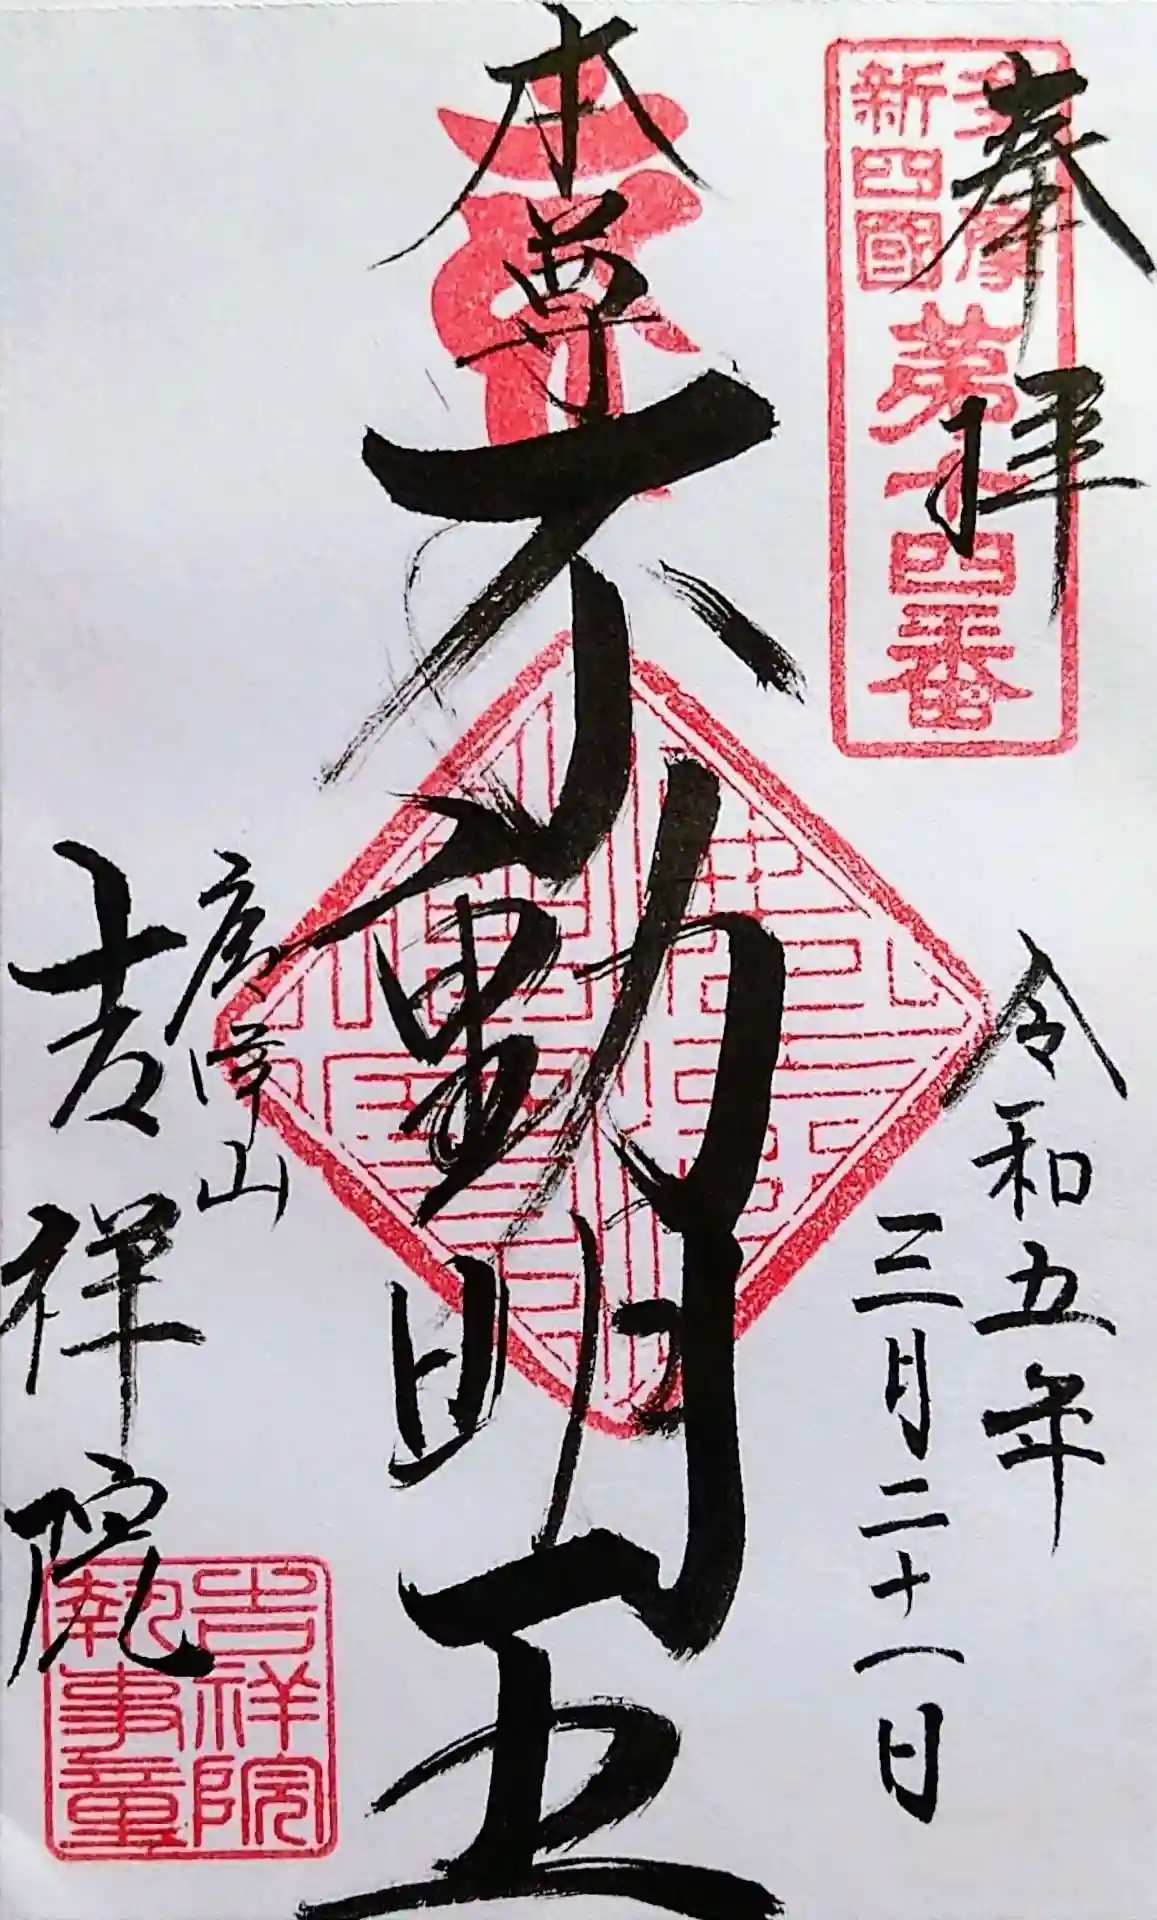 奉拝
多摩
新四国
第十四番
令和五年
三月二十一日
本尊
不動明王
山
吉祥院
吉祥院
執事章